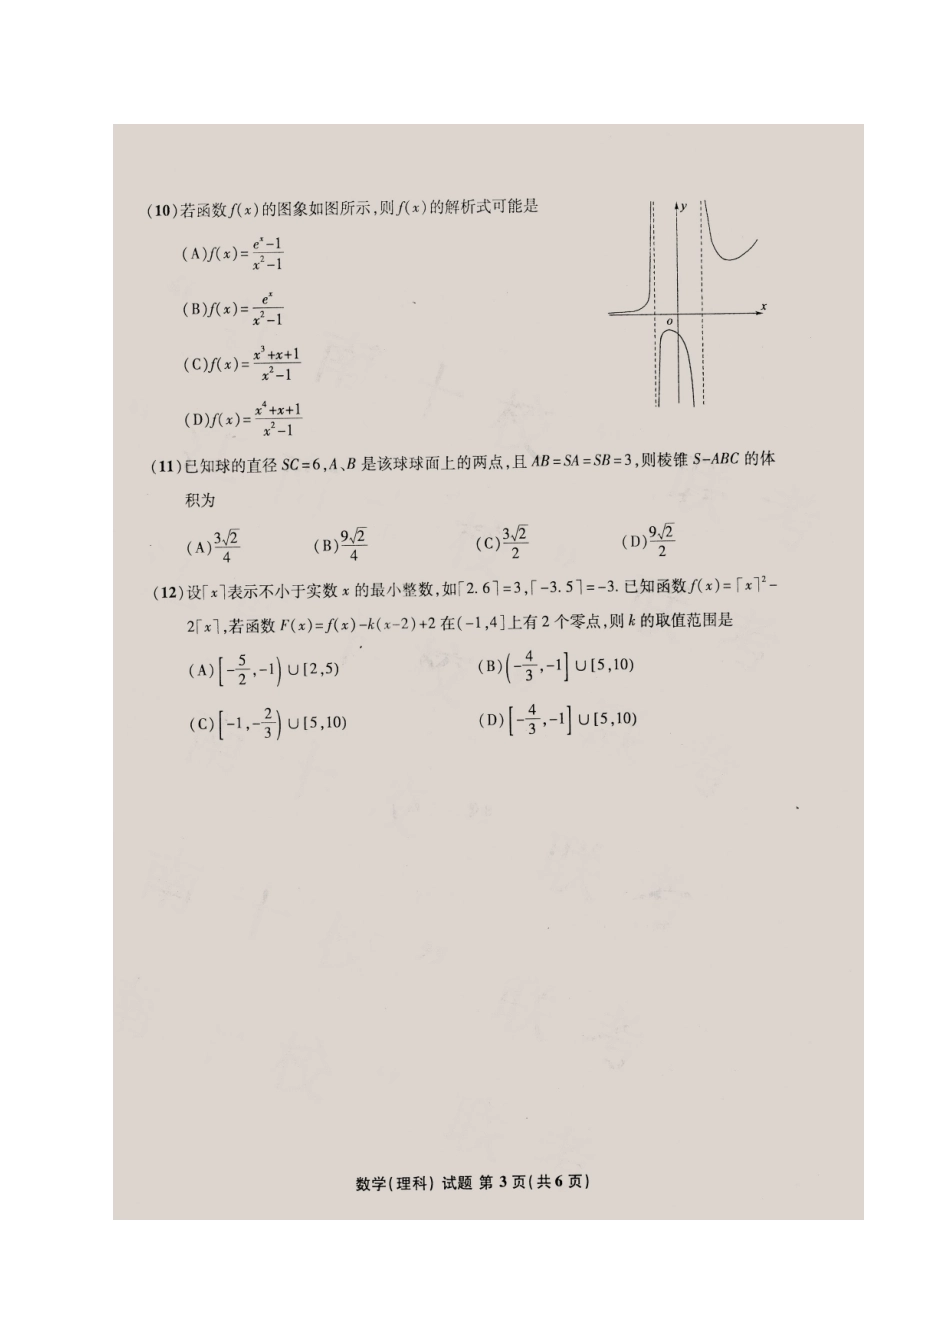 (10)若函数f(x)的图象如图所示,则f(x)的解析式可能是
(A)f(x)=\frac{e^x-1}{x^2-1}
(B)f(x)=\frac{e^x}{x^2-1}
(C)f(x)=\frac{x^3+x+1}{x^2-1}
(D)f(x)=\frac{x^4+x+1}{x^2-1}
y
x
0
(11)已知球的直径SC=6,A、B是该球球面上的两点,且AB=SA=SB=3,则棱锥S-ABC的体
积为
(A)\frac{3\sqrt{2}}{4} (B)\frac{9\sqrt{2}}{4} (C)\frac{3\sqrt{2}}{2} (D)\frac{9\sqrt{2}}{2}
(12)设⌈x⌉表示不小于实数x的最小整数,如⌈2.6⌉=3,⌈-3.5⌉=-3.已知函数f(x)=⌈x⌉²-
2⌈x⌉,若函数F(x)=f(x)-k(x-2)+2在(-1,4]上有2个零点,则k的取值范围是
(A)[-\frac{5}{2},-1)∪[2,5) (B)(-\frac{4}{3},-1]∪[5,10)
(C)[-1,-\frac{2}{3})∪[5,10) (D)[-\frac{4}{3},-1]∪[5,10)
数学(理科) 试题 第3页(共6页)